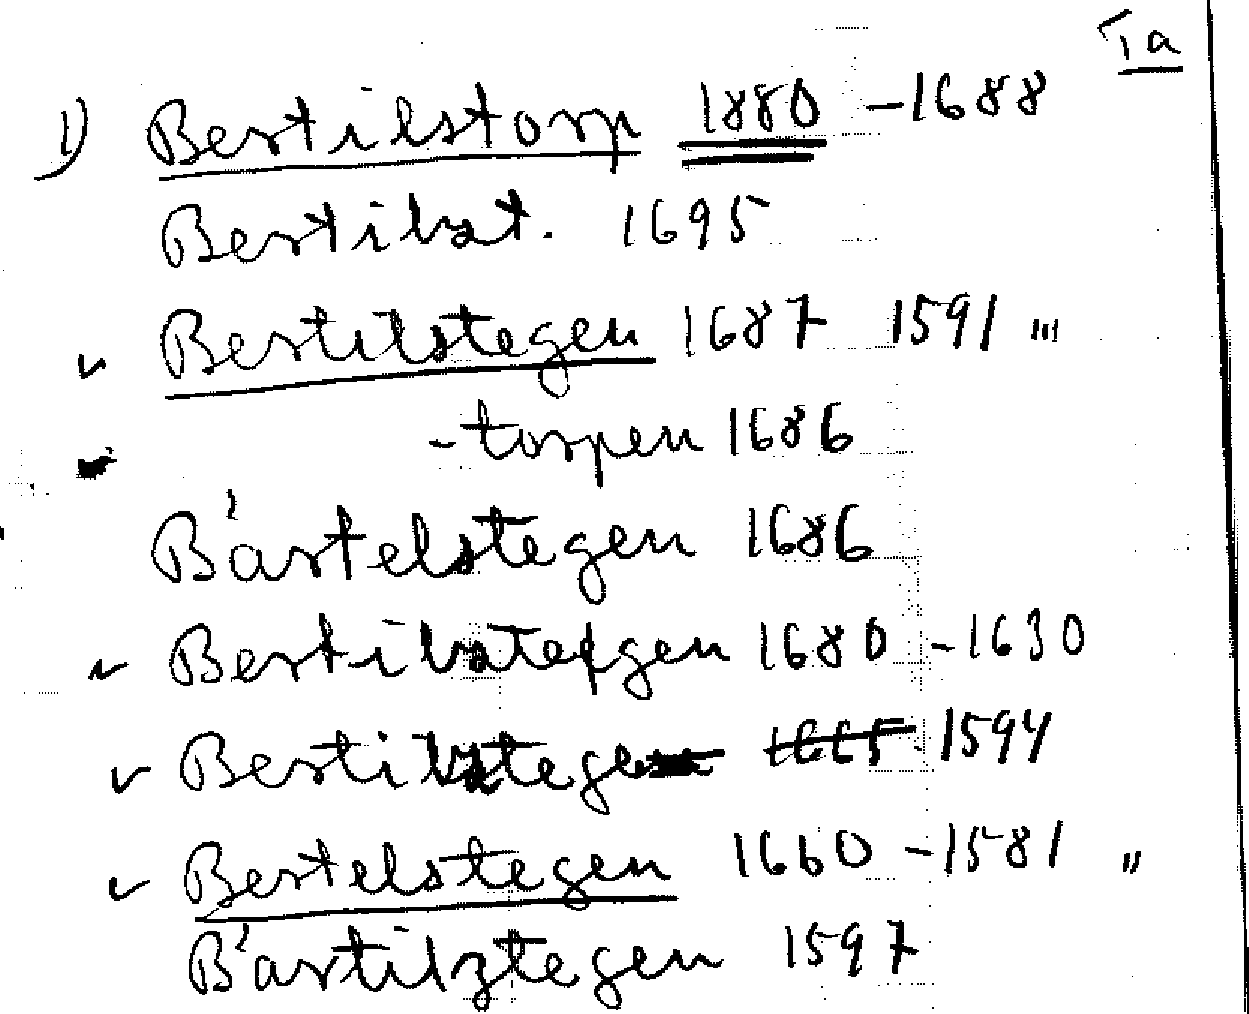 Ta
1) Bertilstorp 1880 -1688
Bertilst. 1695
Bertilstegen 1687 1591 "'
-torpen 1686
Bärtelstegen 1686
Bertilstegen 1680 -1630
Bertilstege 1665 1594
Bertelstegen 1660 -1581 "
Bärtilztegen 1597